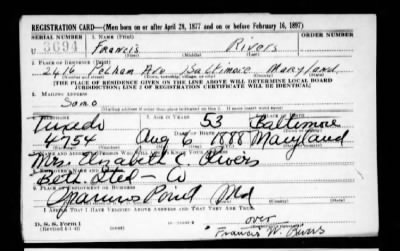 REGISTRATION CARD—(Men born on or after April 28, 1877 and on or before February 16, 1897)
SERIAL NUMBER 1. NAME (Print)
U 3694 Francis Rivers
(First) (Middle) (Last)
2. PLACE OF RESIDENCE (Print)
2416 Pelham Ave Baltimore Maryland
(Number and street) (Town, township, village, or city) (County) (State)
[THE PLACE OF RESIDENCE GIVEN ON THE LINE ABOVE WILL DETERMINE LOCAL BOARD
JURISDICTION; LINE 2 OF REGISTRATION CERTIFICATE WILL BE IDENTICAL]
3. MAILING ADDRESS
Same
[Mailing address if other than place indicated on line 2. If same insert word same]
4. TELEPHONE 5. AGE IN YEARS 6. PLACE OF BIRTH
Tuxedo 53 Baltimore
4754 Aug 6 1888 Maryland
7. NAME AND ADDRESS OF PERSON WHO WILL ALWAYS KNOW YOUR ADDRESS
Mrs. Elizabeth C. Rivers
8. EMPLOYER'S NAME AND ADDRESS
Beth. Steel - Co
9. PLACE OF EMPLOYMENT OR BUSINESS
Sparrows Point Md
I AFFIRM THAT I HAVE VERIFIED ABOVE ANSWERS AND THAT THEY ARE TRUE.
over
D. S. S. Form 1
Francis W. Rivers